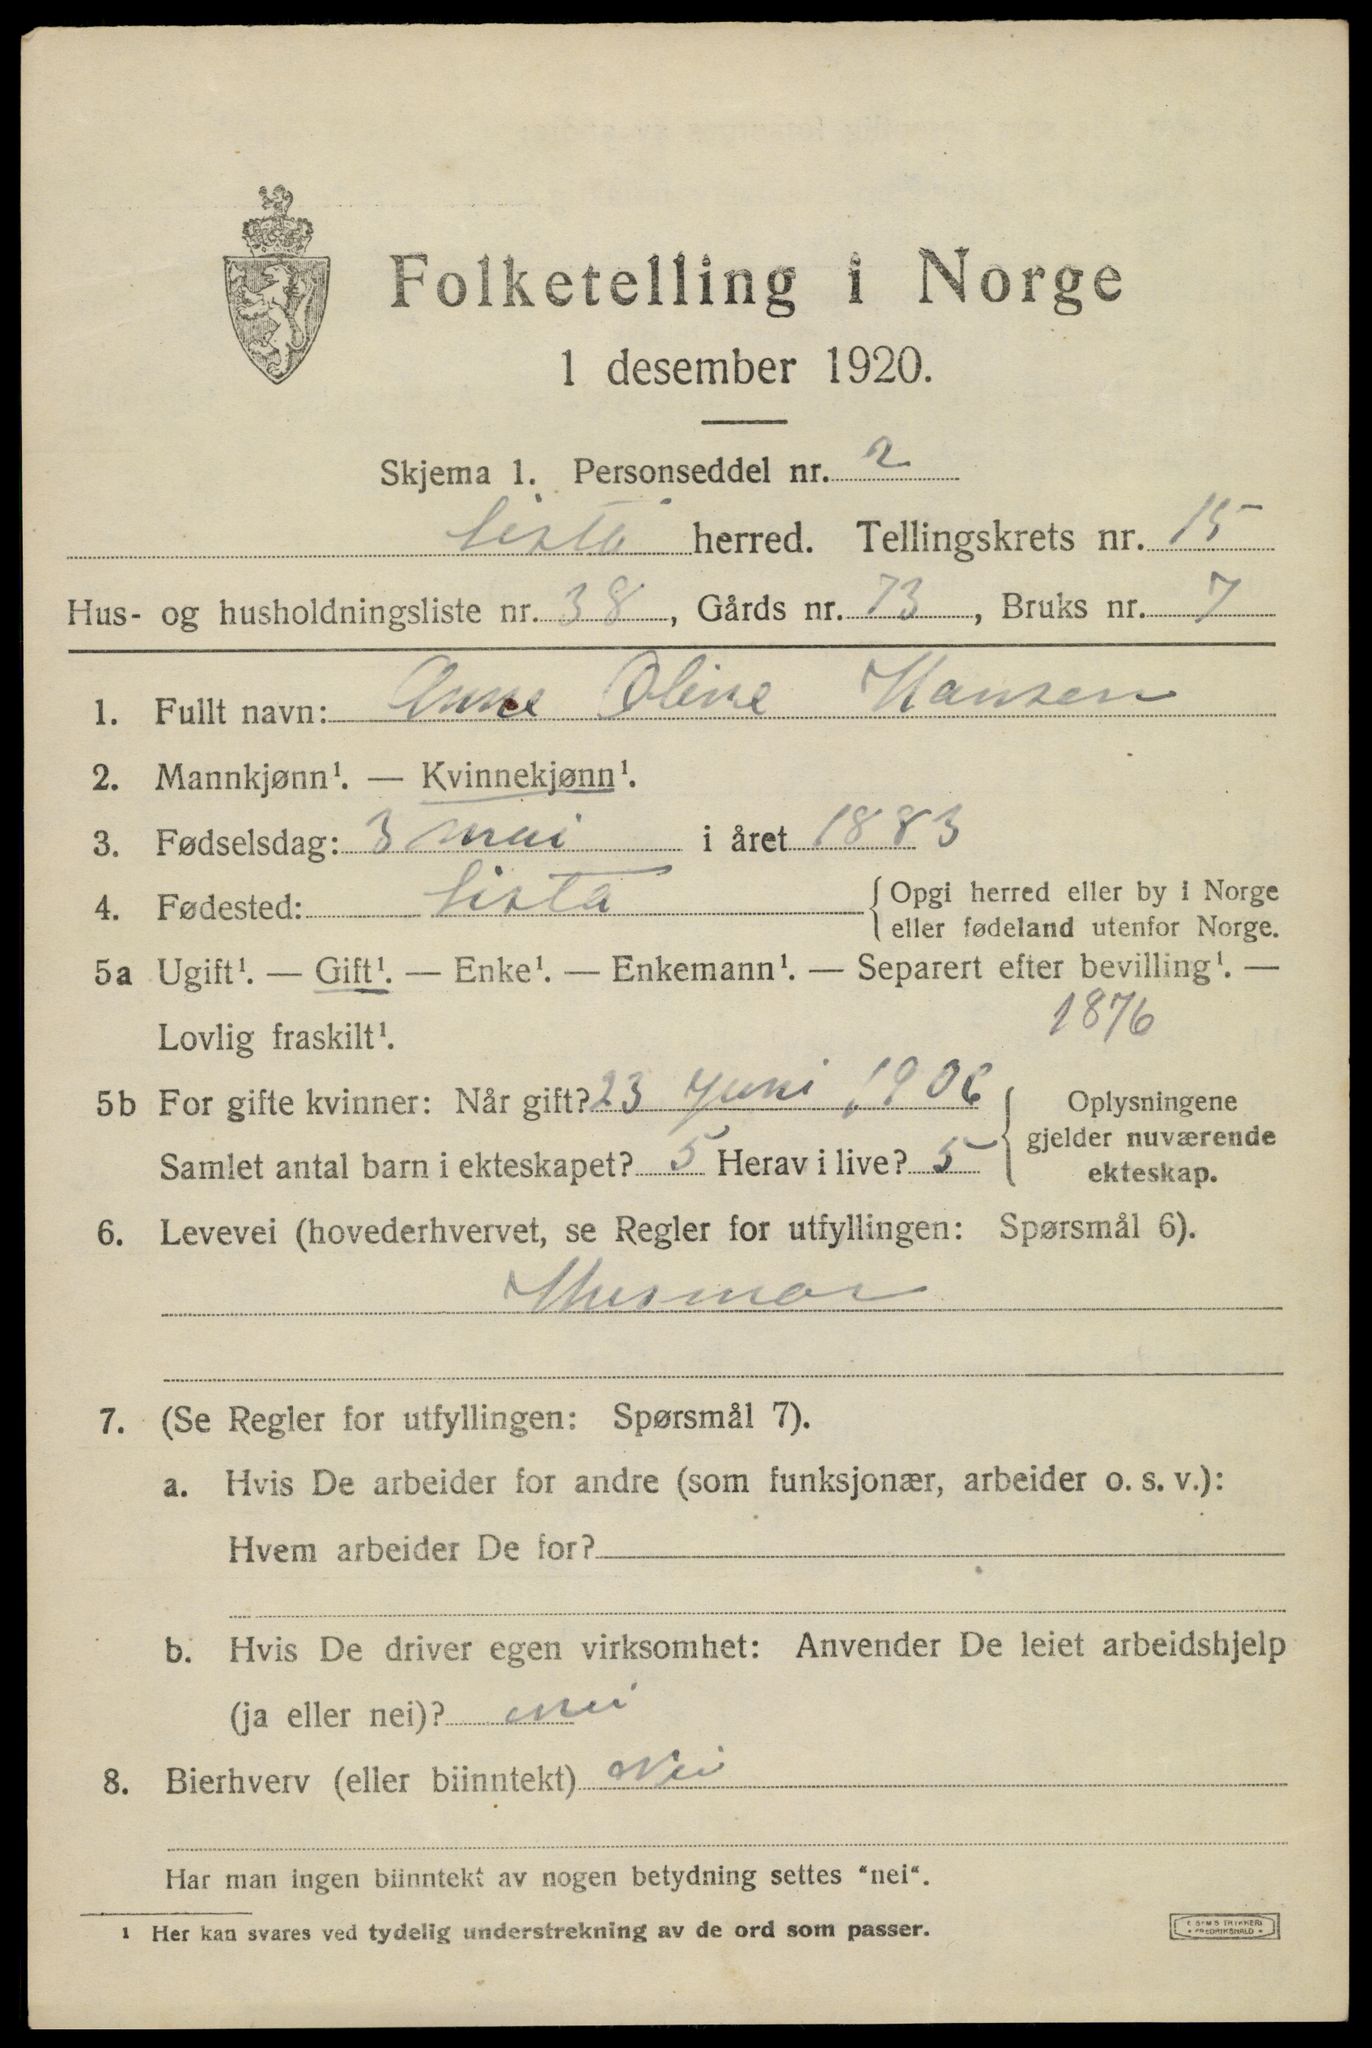 Folketelling i Norge
1 desember 1920.
Skjema 1. Personseddel nr. 2
Lista herred. Tellingskrets nr. 15
Hus- og husholdningsliste nr. 38, Gårds nr. 73, Bruks nr. 7
1. Fullt navn: Anne Oline Hansen
2. Mannkjønn¹. — Kvinnekjønn¹.
3. Fødselsdag: 3 mai i året 1883
4. Fødested: Lista {Opgi herred eller by i Norge
eller fødeland utenfor Norge.
5a Ugift¹. — Gift¹. — Enke¹. — Enkemann¹. — Separert efter bevilling¹. —
Lovlig fraskilt¹. 1876
5b For gifte kvinner: Når gift? 23 Juni 1906
Samlet antal barn i ekteskapet? 5 Herav i live? 5
{Oplysningene
gjelder nuværende
ekteskap.
6. Levevei (hovederhvervet, se Regler for utfyllingen: Spørsmål 6).
Husmor
7. (Se Regler for utfyllingen: Spørsmål 7).
a. Hvis De arbeider for andre (som funksjonær, arbeider o. s. v.):
Hvem arbeider De for?
b. Hvis De driver egen virksomhet: Anvender De leiet arbeidshjelp
(ja eller nei)? nei
8. Bierhverv (eller biinntekt) Nei
Har man ingen biinntekt av nogen betydning settes "nei".
¹ Her kan svares ved tydelig understrekning av de ord som passer.
FREDRIKSHALD